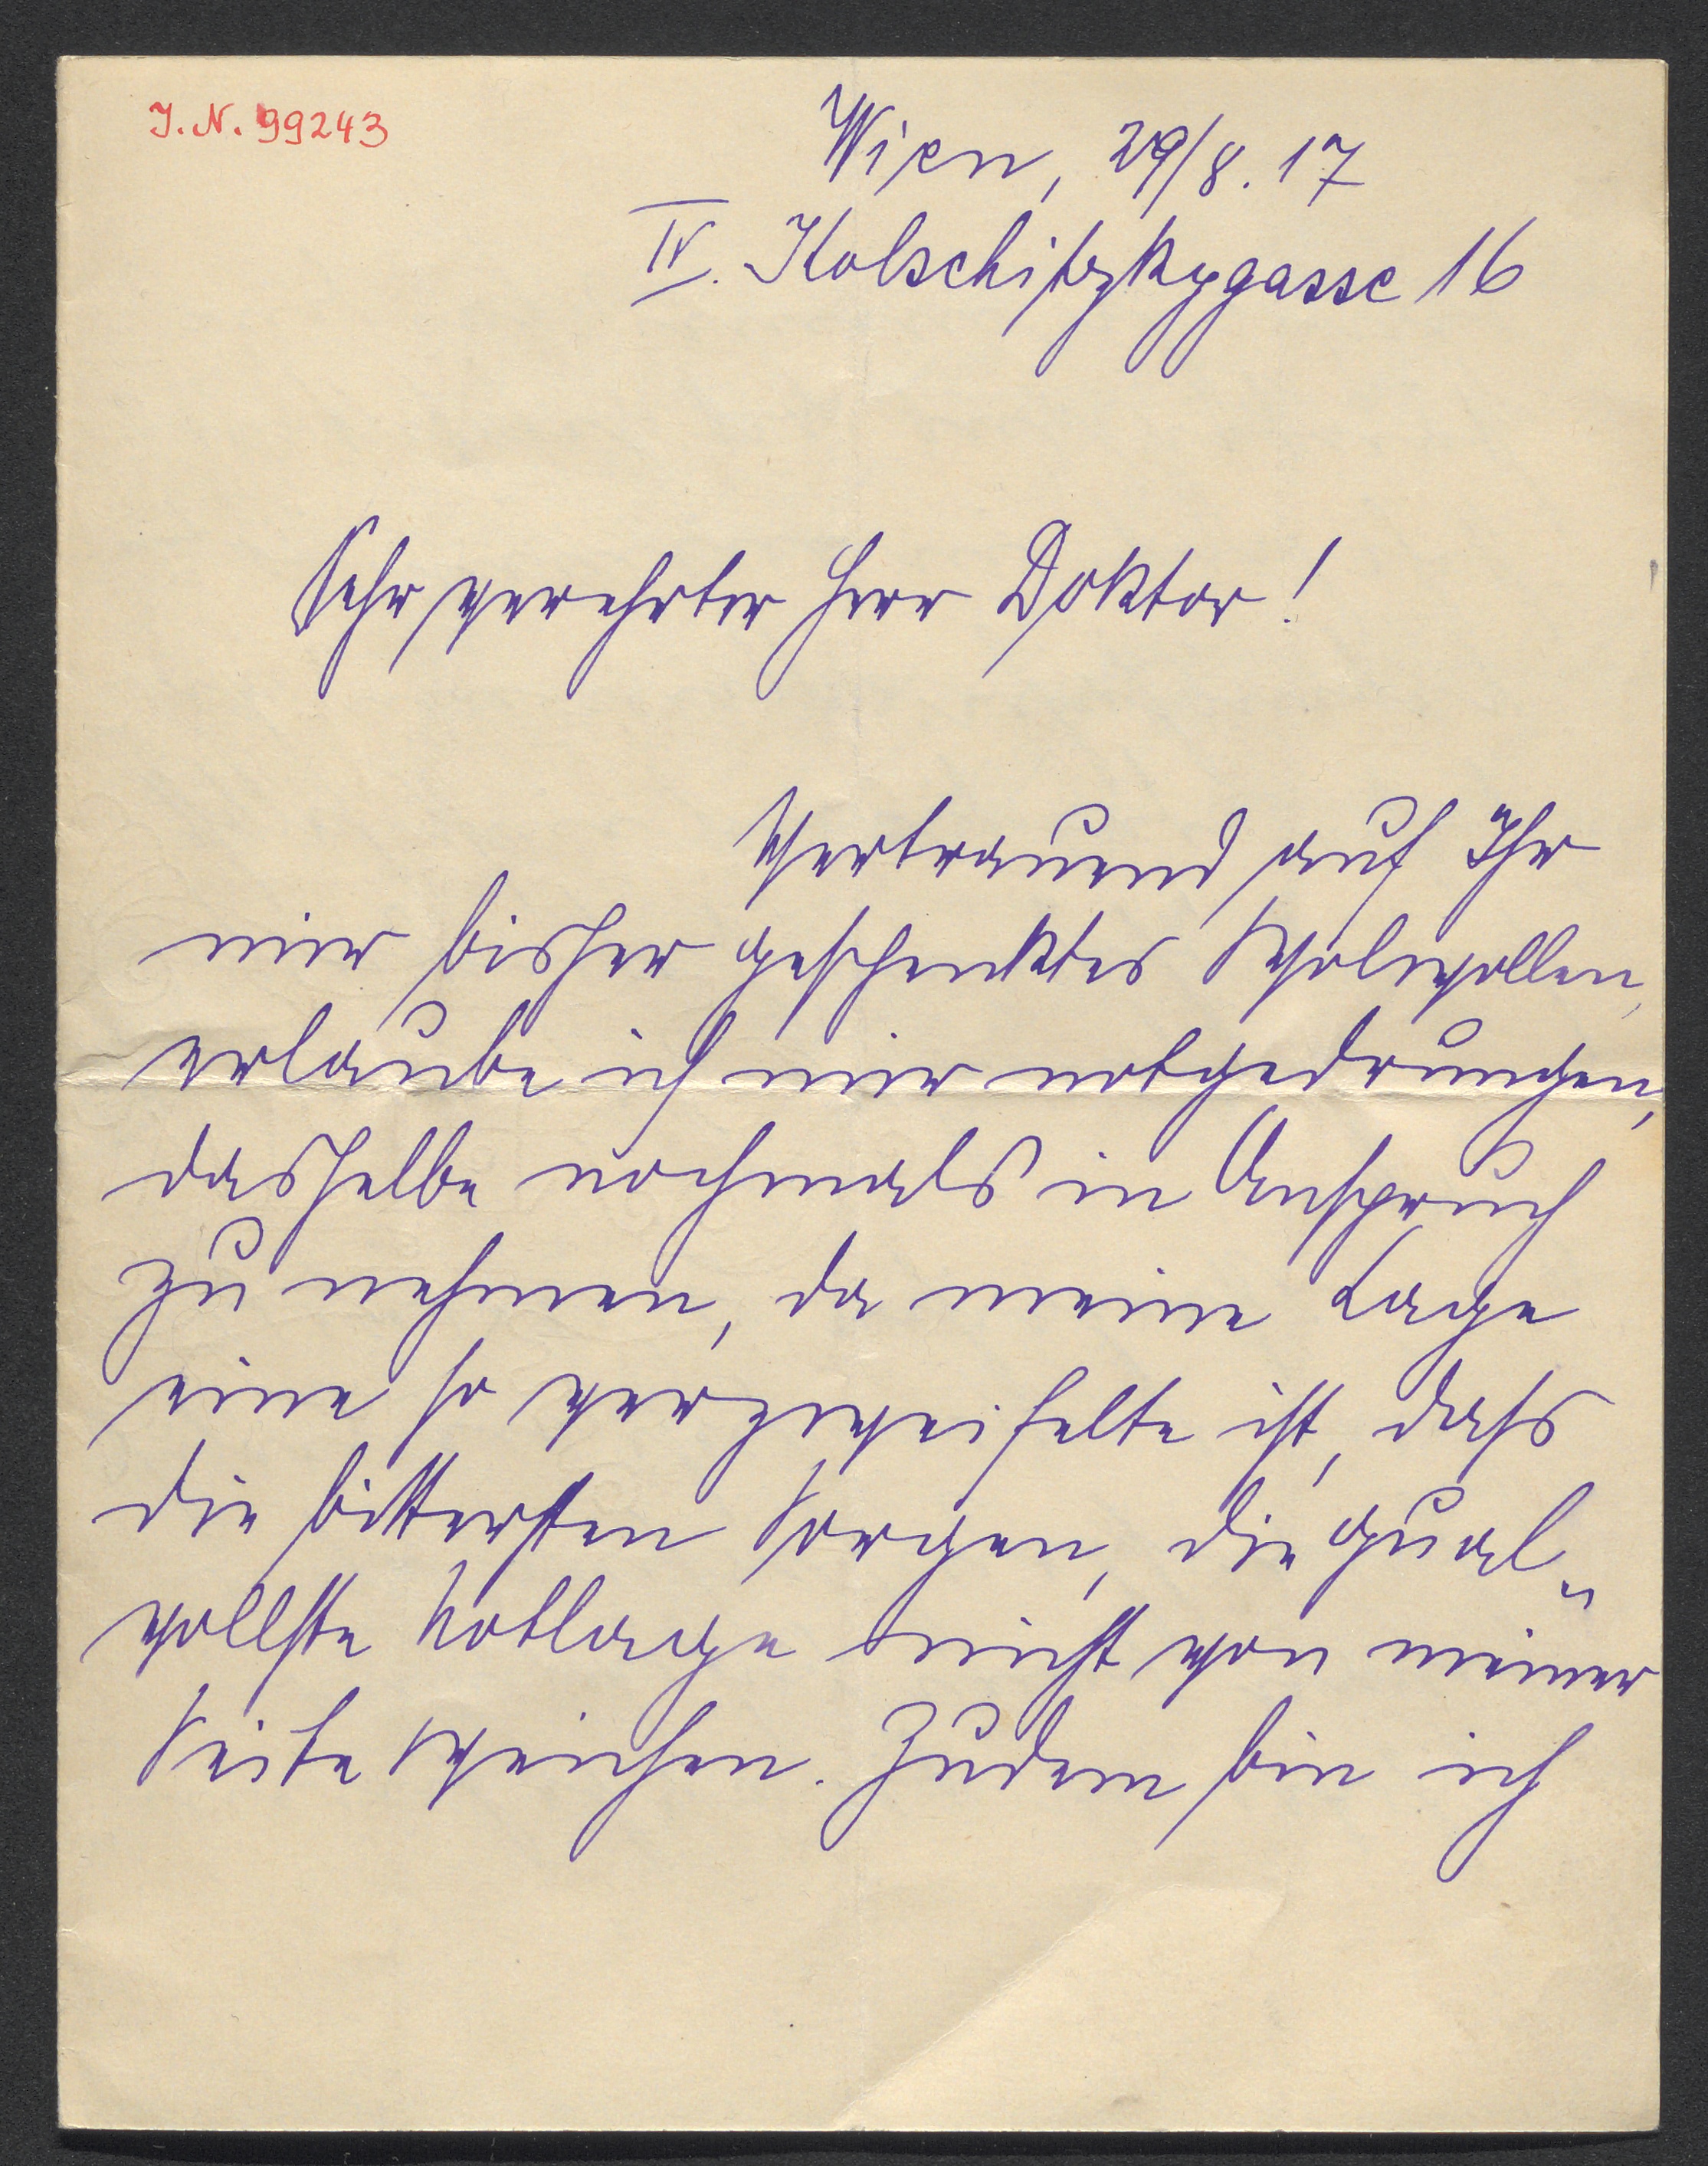 J. N. 99243
Wien, 29/8. 17
IV. Kolschitzkygasse 16
Sehr verehrter Herr Doktor!
Vertrauend auf Ihr
mir bisher geschenktes Wohlwollen,
erlaube ich mir notgedrungen,
dasselbe nochmals in Anspruch
zu nehmen, da meine Lage
eine so verzweifelte ist, dass
die bittersten Sorgen, die qual„
vollste Notlage nicht von meiner
Seite weichen. Zudem bin ich